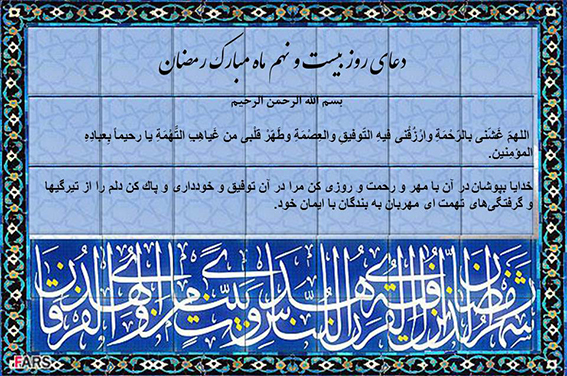 دعای روز بیست و نهم ماه مبارک رمضان
بسم الله الرحمن الرحیم
اللهمّ غَشّنی بالرّحْمَةِ وارْزُقْنی فیهِ التّوفیقِ والعِصْمَةِ وطَهّرْ قلْبی من غَیاهِبِ التُّهْمَةِ یا رحیماً بِعبادِهِ
المؤمِنین.
خدایا بپوشان در آن با مهر و رحمت و روزی کن مرا در آن توفیق و خودداری و پاک کن دلم را از تیرگیها
و گرفتگی‌های تهمت ای مهربان به بندگان با ایمان خود.
شهر رمضان الذی انزل فیه القرآن هدی للناس و بینات من الهدی و الفرقان
FARS